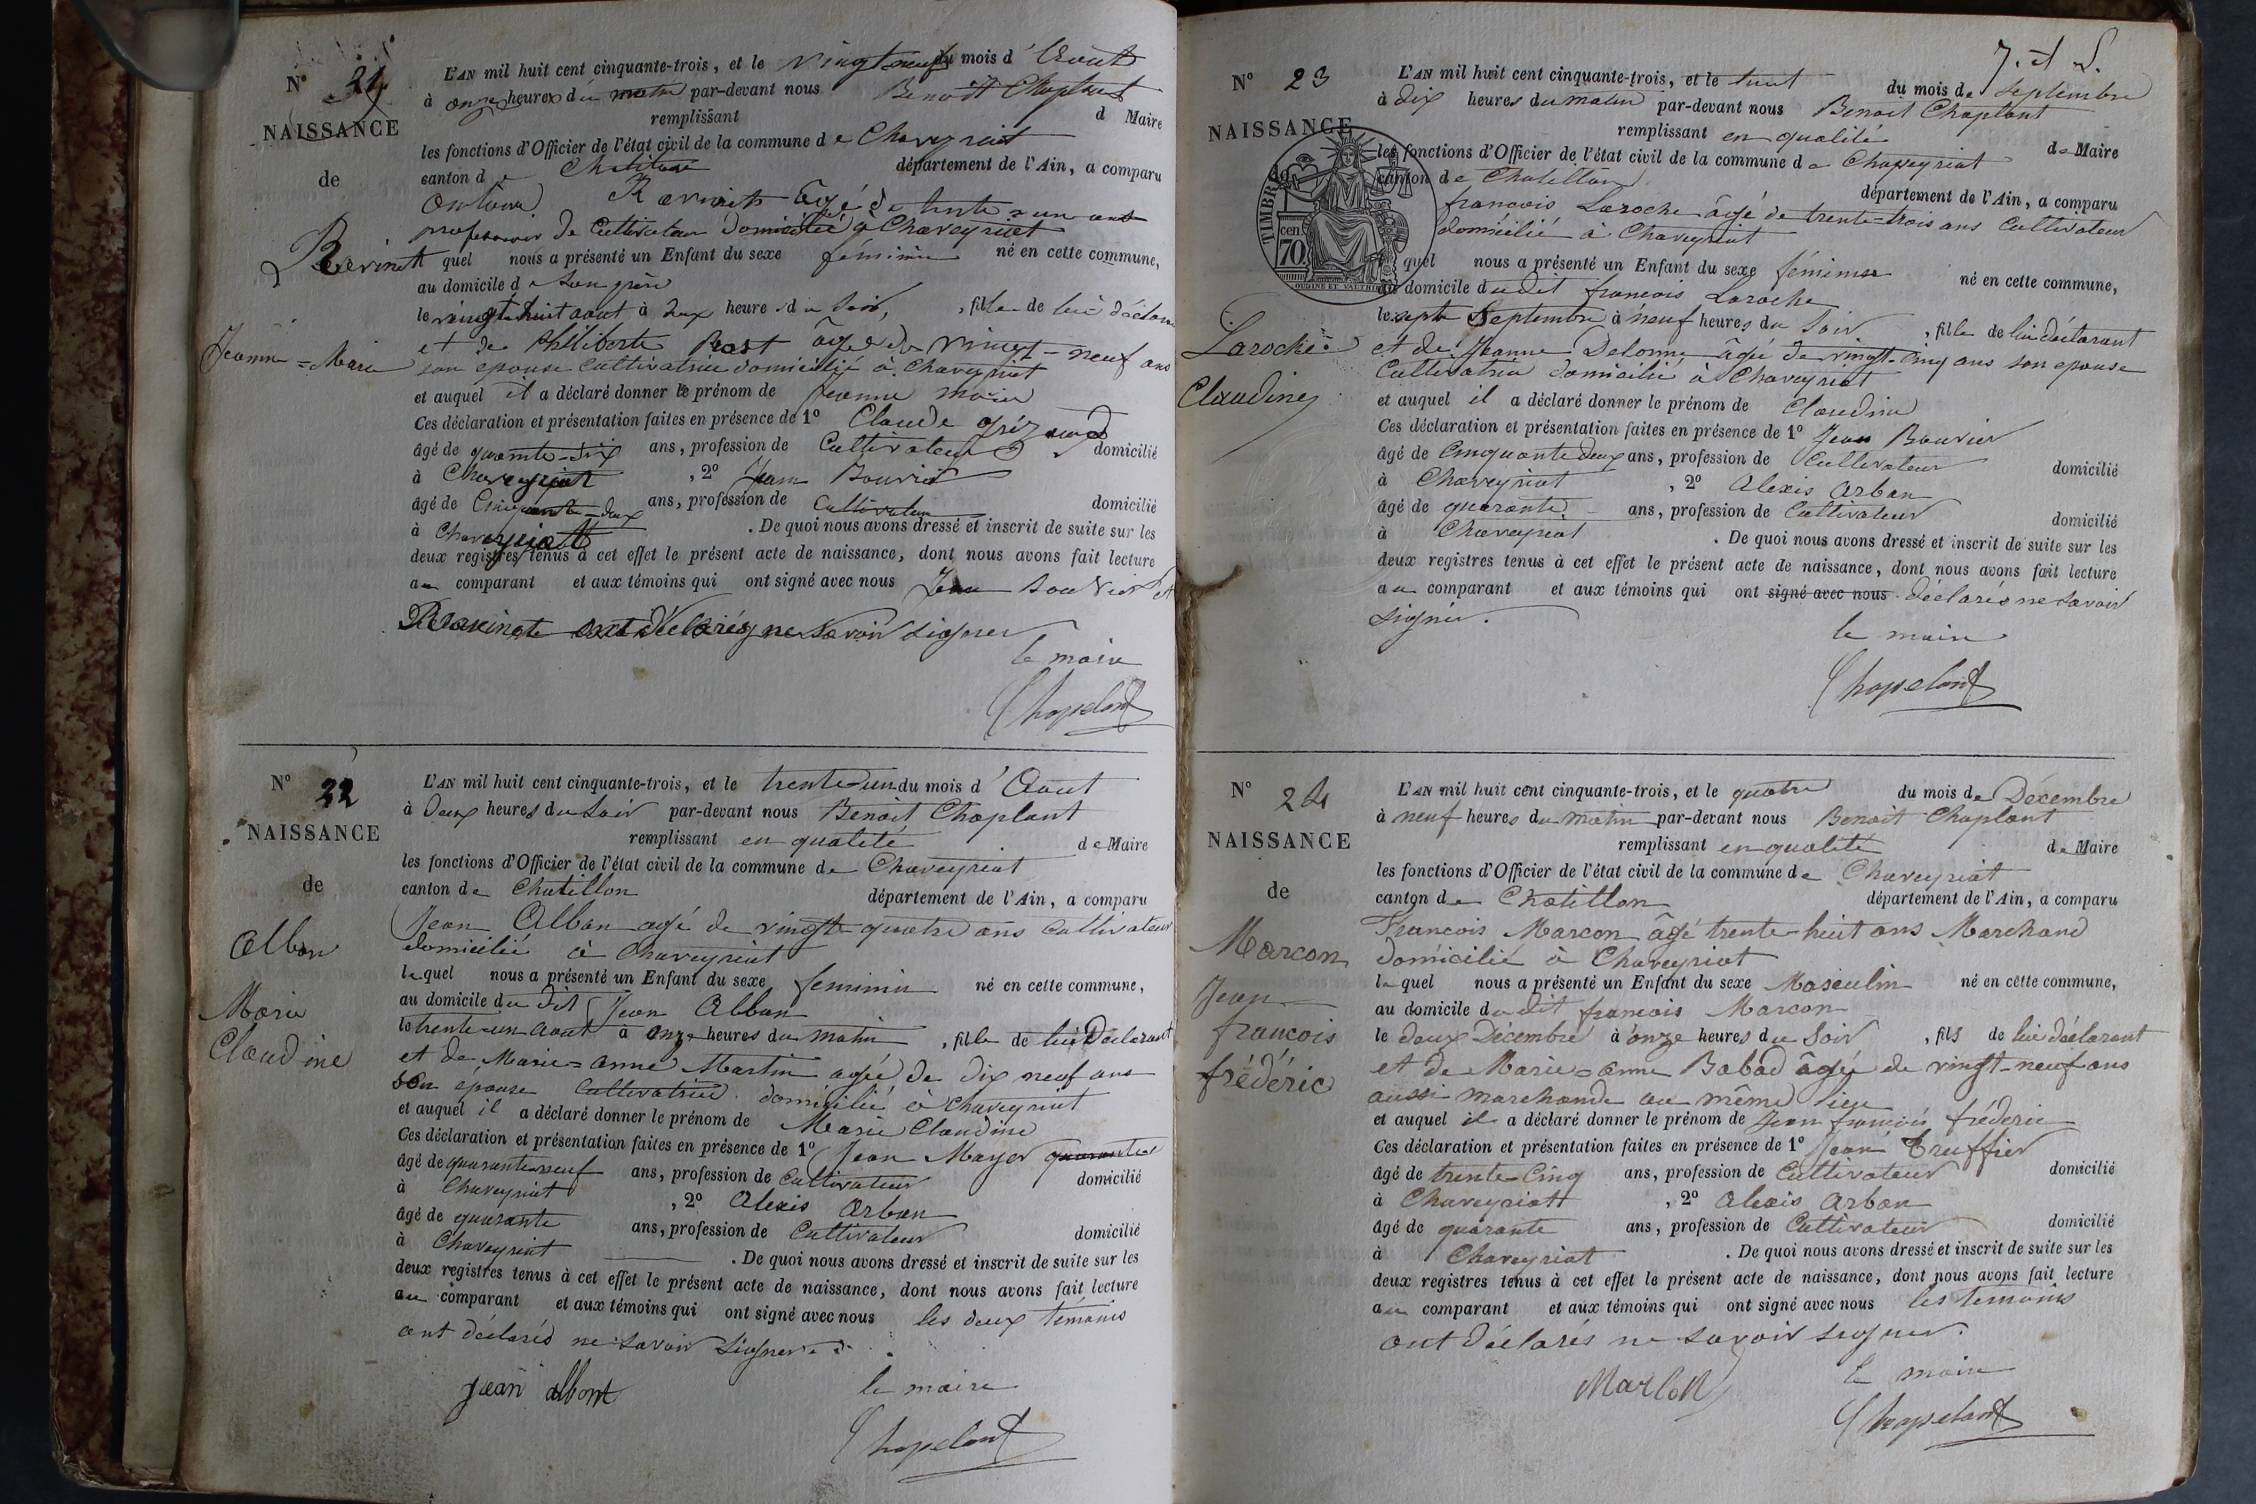 N° 21
NAISSANCE
de
Revinet
Jeanne = Marie
L'AN mil huit cent cinquante-trois, et le vingt neuf du mois d'Aout
à onze heures du matin par-devant nous Benoit Chaplant
remplissant d Maire
les fonctions d'Officier de l'état civil de la commune de Chaveyriat
canton de Chatillon département de l'Ain, a comparu
Revinet âgé de trente = un ans
profession de Cultivateur domicilié à Chaveyriat
quel nous a présenté un Enfant du sexe féminin né en cette commune,
au domicile de son père
le vingt huit aout à deux heures du soir, , fille de lui déclarant
et de Philiberte Prost âgée de vingt-neuf ans
son épouse cultivatrice domicilié à Chaveyriat
et auquel il a déclaré donner le prénom de Jeanne Marie
Ces déclaration et présentation faites en présence de 1° Claude
âgé de quarante-six ans, profession de Cultivateur domicilié
à Chaveyriat , 2° Jean Bouvier
âgé de Cinquante-deux ans, profession de Cultivateur domicilié
à Chaveyriat . De quoi nous avons dressé et inscrit de suite sur les
deux registres tenus à cet effet le présent acte de naissance, dont nous avons fait lecture
au comparant et aux témoins qui ont signé avec nous Jean Bouvier et
Revinet ont déclarés ne savoir signer
le maire
Chapelant
N° 22
NAISSANCE
de
Albon
Marie
Claudine
L'AN mil huit cent cinquante-trois, et le trente-un du mois d'Aout
à deux heures du soir par-devant nous Benoit Chaplant
remplissant en qualité de Maire
les fonctions d'Officier de l'état civil de la commune de Chaveyriat
canton de Chatillon département de l'Ain, a comparu
Jean Alban agé de vingt-quatre ans cultivateur
domicilié à Chaveyriat
lequel nous a présenté un Enfant du sexe feminin né en cette commune,
au domicile du dit Jean Alban
le trente-un aout à onze heures du matin , fille de lui Déclarant
et de Marie=anne Martin agée de dix neuf ans
son épouse cultivatrice domicilié à Chaveyriat
et auquel il a déclaré donner le prénom de Marie Claudine
Ces déclaration et présentation faites en présence de 1° Jean Mayer quarante
âgé de quarante neuf ans, profession de Cultivateur domicilié
à Chaveyriat , 2° Alexis Arban
âgé de quarante ans, profession de Cultivateur domicilié
à Chaveyriat . De quoi nous avons dressé et inscrit de suite sur les
deux registres tenus à cet effet le présent acte de naissance, dont nous avons fait lecture
au comparant et aux témoins qui ont signé avec nous les deux témoins
ont déclarés ne savoir signer
jean albont
le maire
Chapelant
7. et S.
N° 23
NAISSANCE
TIMBRE
70 cen
OUDINÉ ET VAUTHIER
Laroche
Claudine
L'AN mil huit cent cinquante-trois, et le huit du mois de Septembre
à dix heures du matin par-devant nous Benoit Chaplant
remplissant en qualité de Maire
les fonctions d'Officier de l'état civil de la commune de Chaveyriat
canton de Chatillon département de l'Ain, a comparu
francois Laroche âgé de trente-trois ans Cultivateur
domicilié à Chaveyriat
quel nous a présenté un Enfant du sexe féminin né en cette commune,
au domicile dudit francois Laroche
le sept Septembre à neuf heures du Soir , fille de lui déclarant
et de Jeanne Delorme âgé de vingt-cinq ans son epouse
Cultivatrice domicilié à Chaveyriat
et auquel il a déclaré donner le prénom de Claudine
Ces déclaration et présentation faites en présence de 1° Jean Bouvier
âgé de Cinquante deux ans, profession de Cultivateur domicilié
à Chaveyriat , 2° Alexis Arban
âgé de quarante ans, profession de Cultivateur domicilié
à Chaveyriat . De quoi nous avons dressé et inscrit de suite sur les
deux registres tenus à cet effet le présent acte de naissance, dont nous avons fait lecture
au comparant et aux témoins qui ont signé avec nous déclarés ne savoir
signer.
le maire
Chapelant
N° 24
NAISSANCE
de
Marcon
Jean
francois
frédéric
L'AN mil huit cent cinquante-trois, et le quatre du mois de Décembre
à neuf heures du matin par-devant nous Benoit Chaplant
remplissant en qualité de Maire
les fonctions d'Officier de l'état civil de la commune de Chaveyriat
canton de Chatillon département de l'Ain, a comparu
Francois Marcon âgé trente-huit ans Marchand
domicilié à Chaveyriat
lequel nous a présenté un Enfant du sexe Masculin né en cette commune,
au domicile du dit francois Marcon
le deux Décembre à onze heures du Soir , fils de lui déclarant
et de Marie=anne Babad âgée de vingt-neuf ans
aussi marchande au même lieu
et auquel il a déclaré donner le prénom de Jean francois fréderic
Ces déclaration et présentation faites en présence de 1° Jean Truffier
âgé de trente-Cinq ans, profession de Cultivateur domicilié
à Chaveyriat , 2° Alexis Arban
âgé de quarante ans, profession de Cultivateur domicilié
à Chaveyriat . De quoi nous avons dressé et inscrit de suite sur les
deux registres tenus à cet effet le présent acte de naissance, dont nous avons fait lecture
au comparant et aux témoins qui ont signé avec nous les temoins
ont déclarés ne savoir signer.
Marcon
le maire
Chapelant